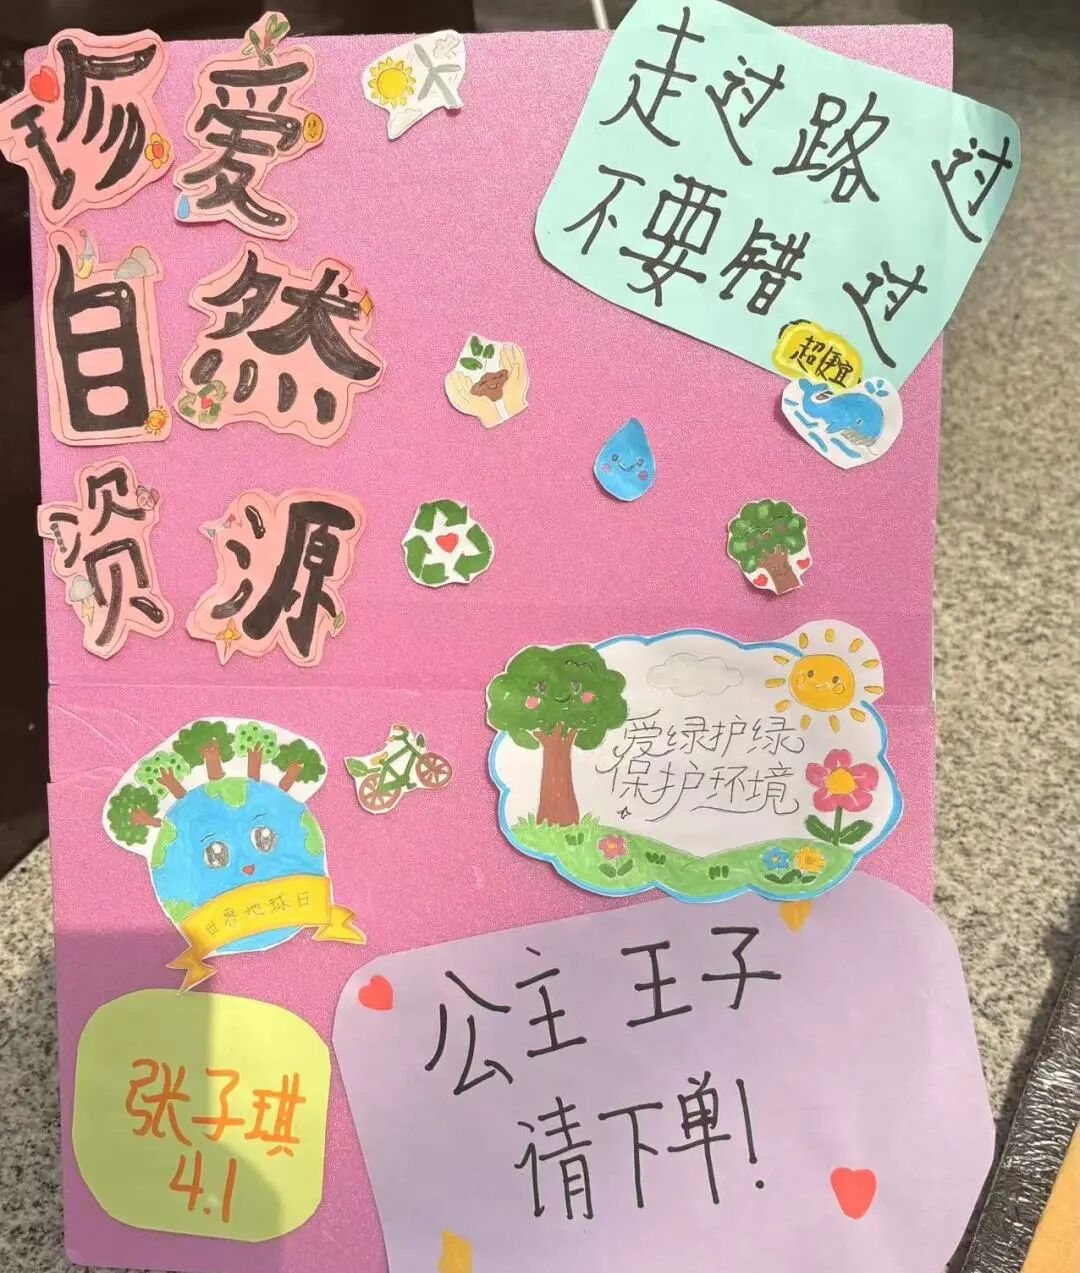 珍爱
自然
资源
走过路过
不要错过
超便宜
爱绿护绿
保护环境
世界地球日
张子琪
4.1
公主王子
请下单!